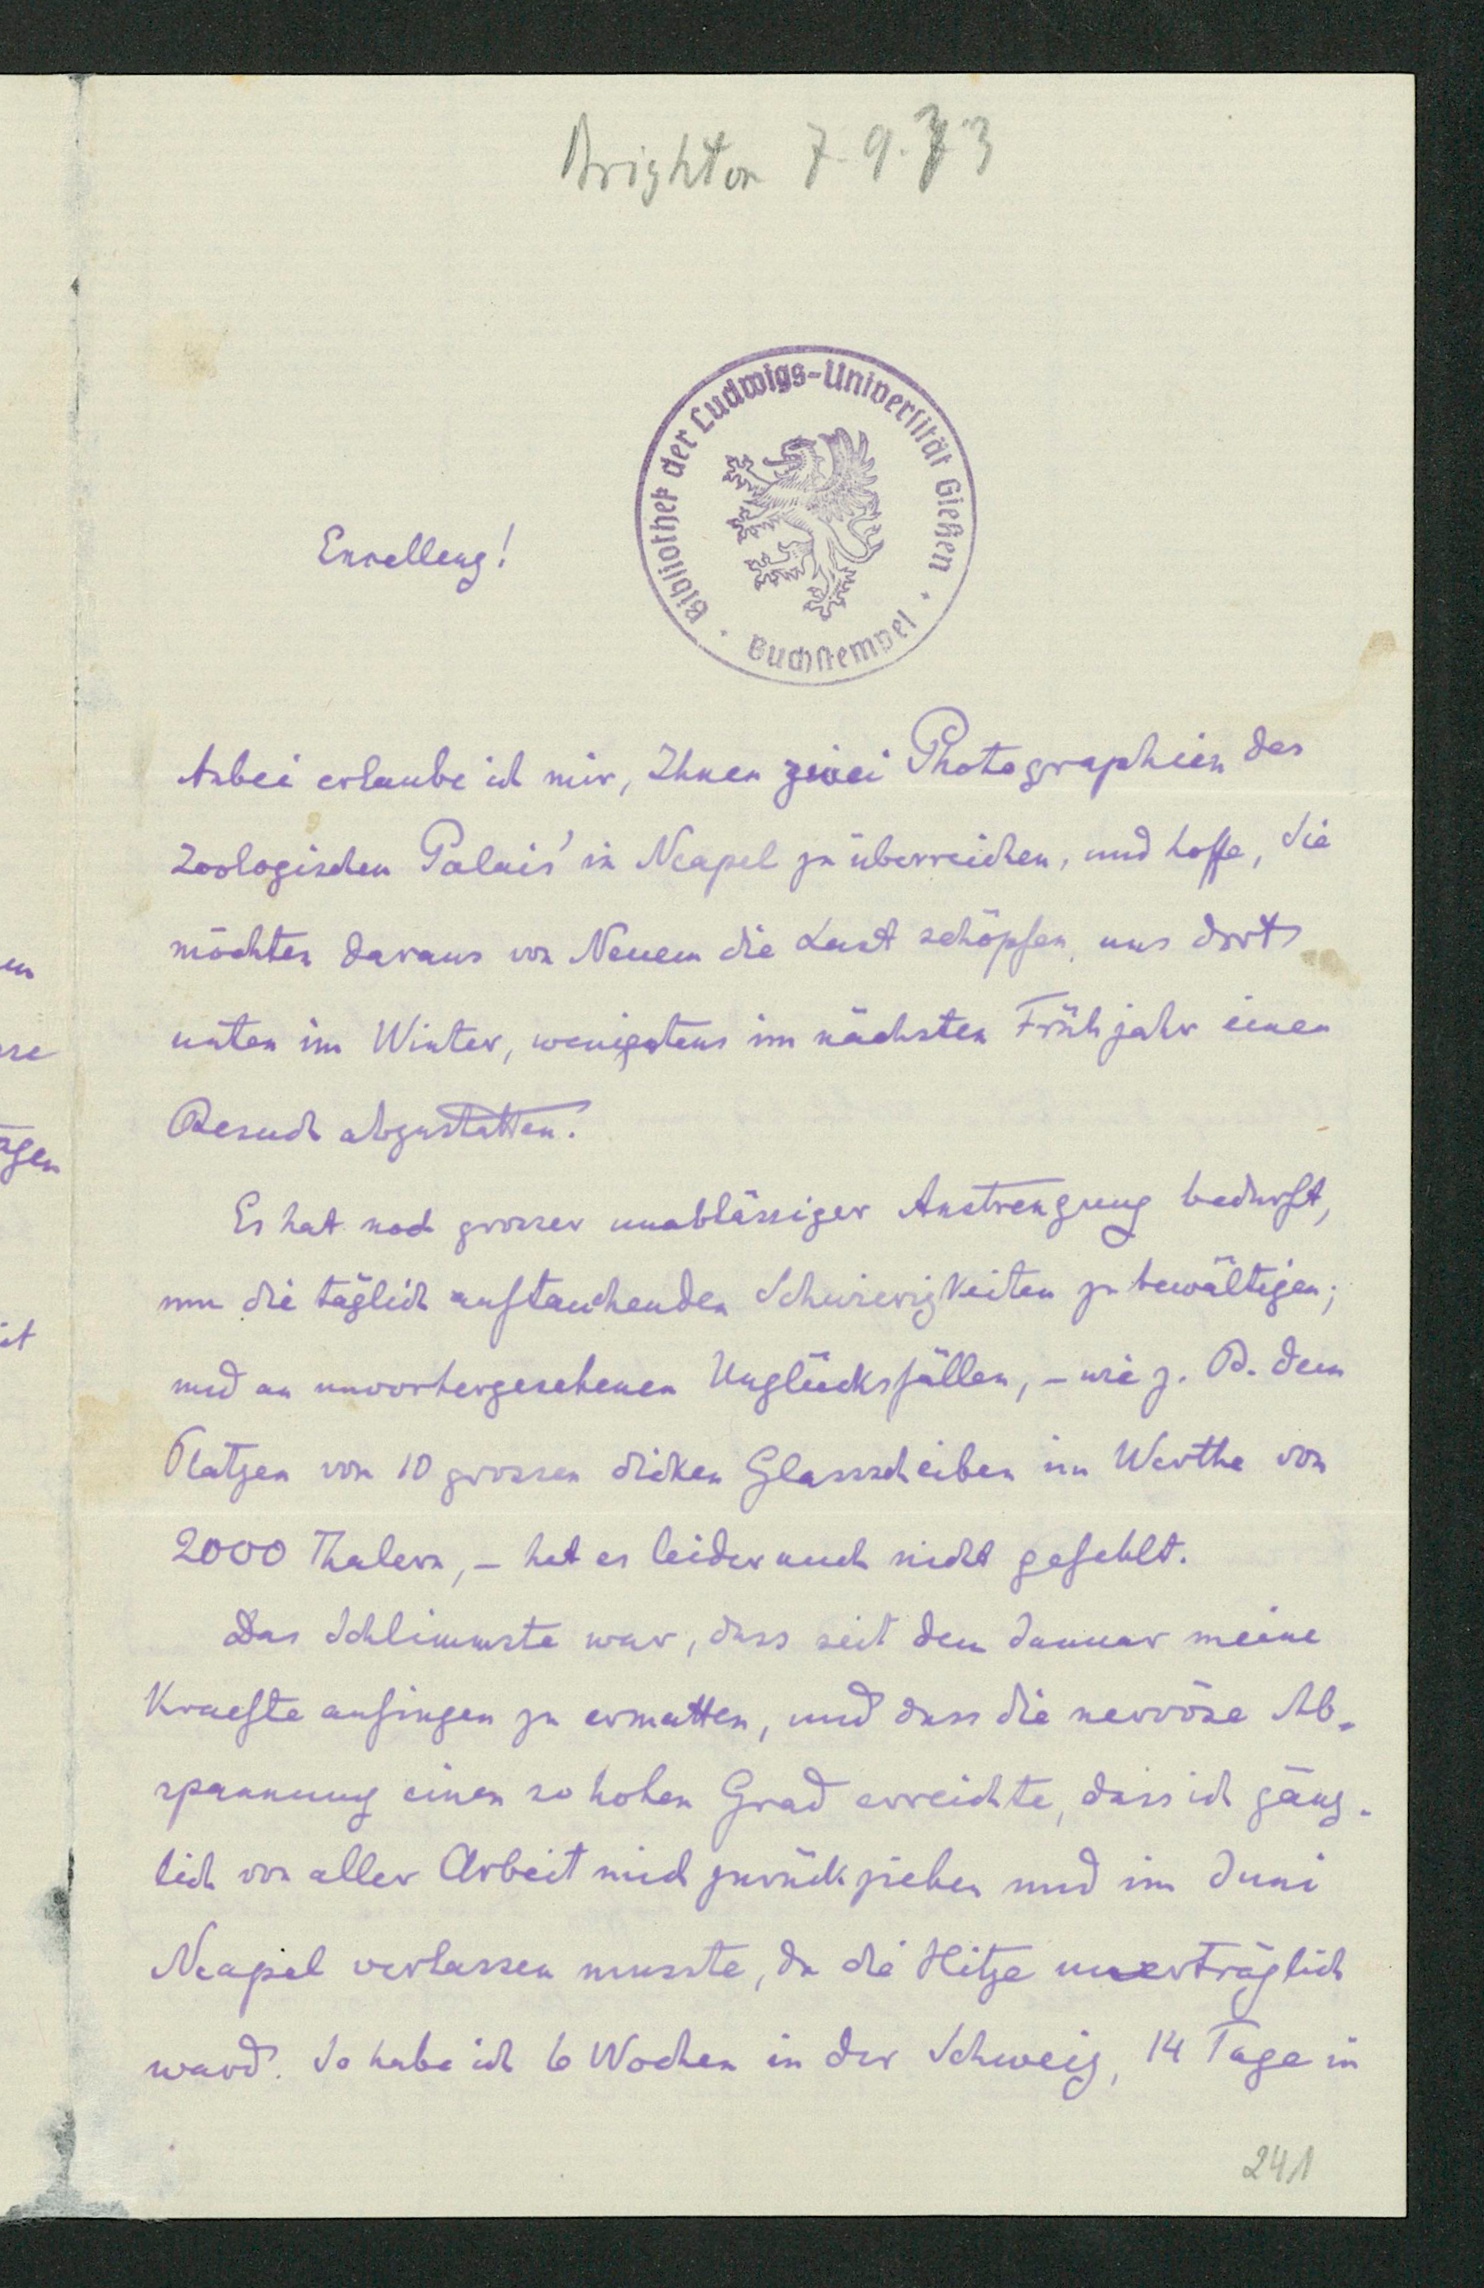 Brighton 7.9.73
Bibliothek der Ludwigs-Universität Gießen
Buchstempel
Excellenz!
Anbei erlaube ich mir, Ihnen zwei Photographien des
Zoologischen Palais' in Neapel zu überreichen, und hoffe, Sie
möchten daraus von Neuem die Lust schöpfen, uns dort
unten im Winter, wenigstens im nächsten Frühjahr einen
Besuch abzustatten.
Es hat noch grosser unablässiger Anstrengung bedurft,
um die täglich auftauchenden Schwierigkeiten zu bewältigen;
und an unvorhergesehenen Unglücksfällen, – wie z. B. dem
Platzen von 10 grossen dicken Glasscheiben im Werthe von
2000 Thalern, – hat es leider auch nicht gefehlt.
Das Schlimmste war, dass seit dem Januar meine
Kraefte anfingen zu ermatten, und dass die nervöse Ab-
spannung einen so hohen Grad erreichte, dass ich gänz-
lich von aller Arbeit mich zurückziehen und im Juni
Neapel verlassen musste, da die Hitze unerträglich
ward. So habe ich 6 Wochen in der Schweiz, 14 Tage in
241